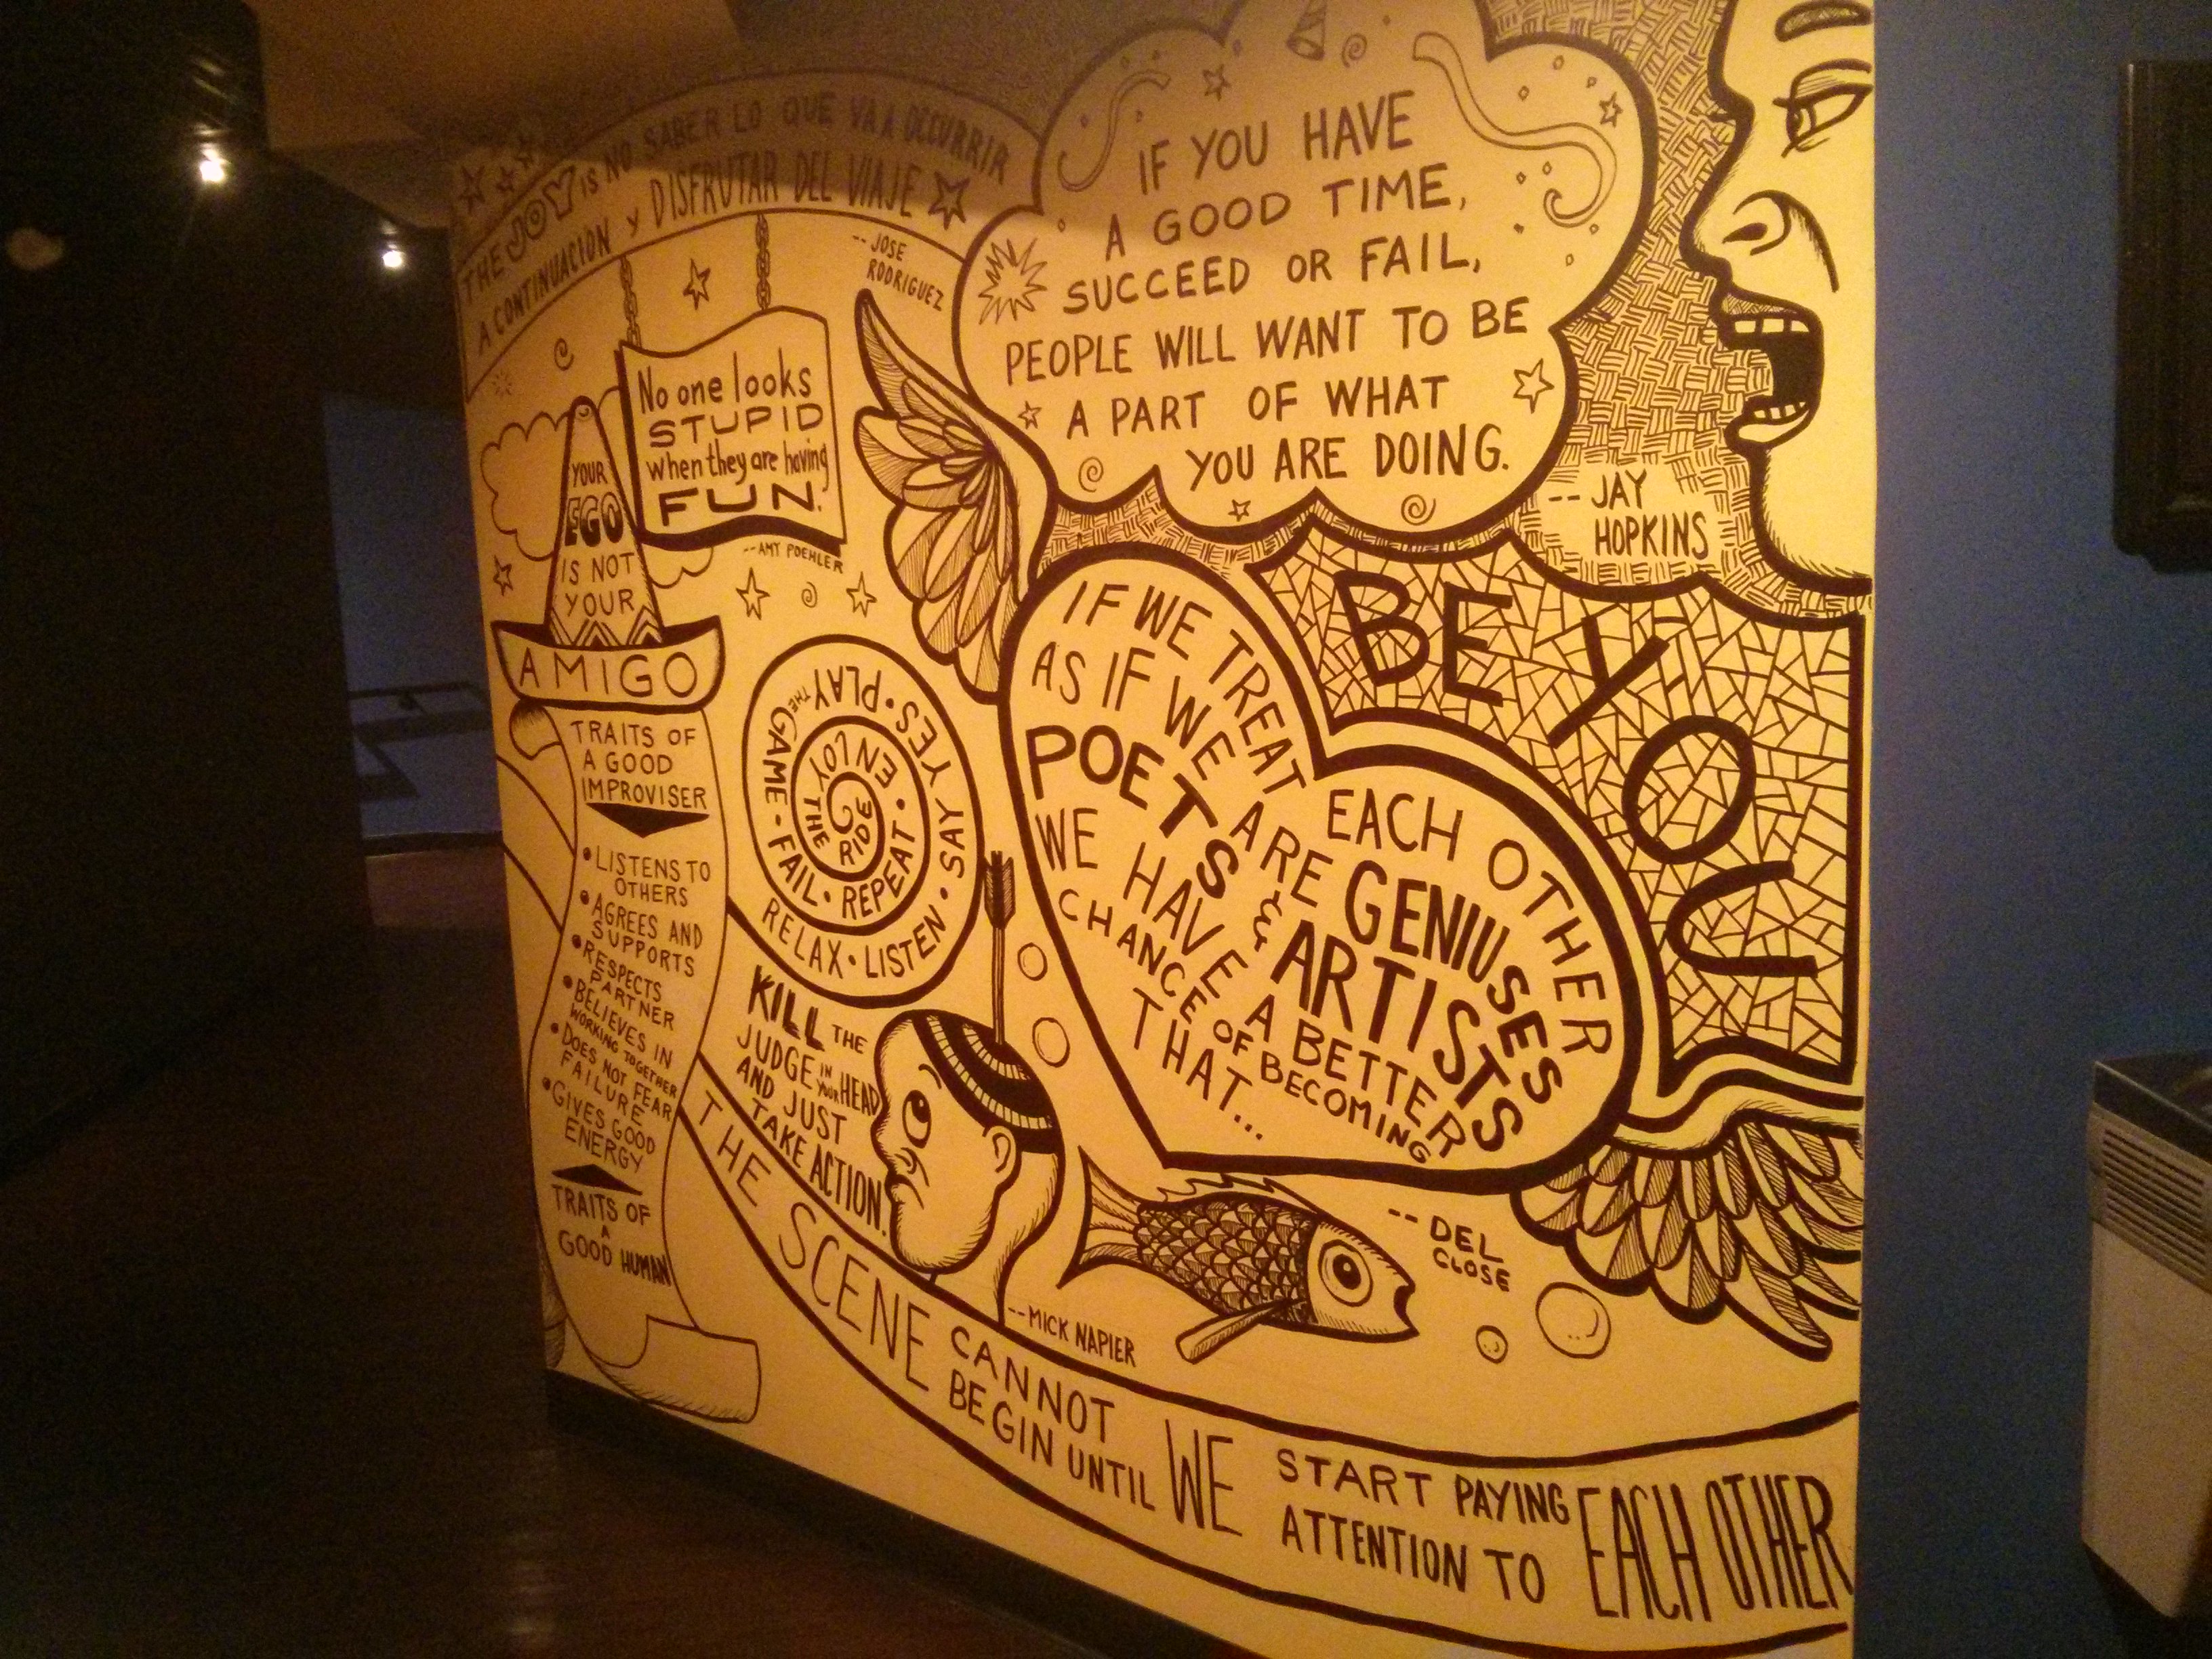 THE JOY IS NO SABER LO QUE VA A OCCURRIR
A CONTINUACIÓN Y DISFRUTAR DEL VIAJE
-- JOSE
RODRIGUEZ
IF YOU HAVE
A GOOD TIME,
SUCCEED OR FAIL,
PEOPLE WILL WANT TO BE
A PART OF WHAT
YOU ARE DOING.
-- JAY
HOPKINS
No one looks
STUPID
when they are having
FUN.
-- AMY POEHLER
YOUR
EGO
IS NOT
YOUR
AMIGO
TRAITS OF
A GOOD
IMPROVISER
• LISTENS TO
OTHERS
• AGREES AND
SUPPORTS
• RESPECTS
PARTNER
• BELIEVES IN
WORKING TOGETHER
• DOES NOT FEAR
FAILURE
• GIVES GOOD
ENERGY
TRAITS OF
A
GOOD HUMAN
RELAX • LISTEN • SAY YES • PLAY THE GAME • FAIL • REPEAT • ENJOY THE RIDE
KILL THE
JUDGE IN YOUR HEAD
AND JUST
TAKE ACTION.
-- MICK NAPIER
BE YOU
IF WE TREAT EACH OTHER
AS IF WE ARE GENIUSES
POETS & ARTISTS
WE HAVE A BETTER
CHANCE OF BECOMING
THAT...
-- DEL
CLOSE
THE SCENE CANNOT
BEGIN UNTIL WE START PAYING
ATTENTION TO EACH OTHER